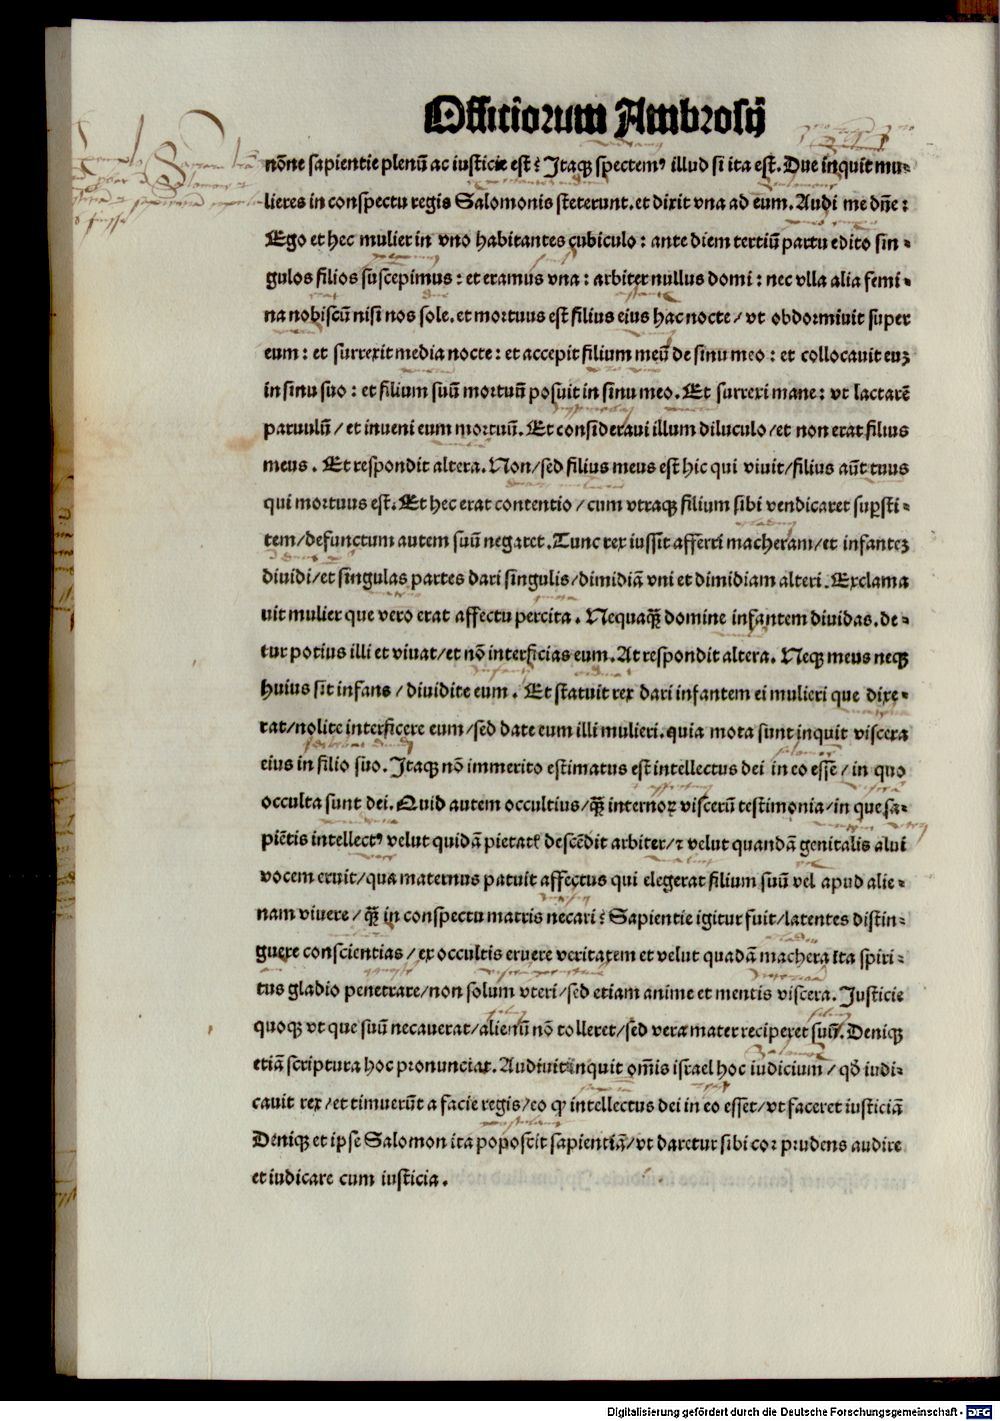 Officiorum Ambrosij
nōne sapientie plenū ac iusticie est? Itaq̃ spectem⁹ illud si ita est. Due inquit mu-
lieres in conspectu regis Salomonis steterunt. et dixit vna ad eum. Audi me dñe:
Ego et hec mulier in vno habitantes cubiculo: ante diem tertiū partu edito sin-
gulos filios suscepimus: et eramus vna: arbiter nullus domi: nec vlla alia femi-
na nobiscū nisi nos sole. et mortuus est filius eius hac nocte/ vt obdormiuit super
eum: et surrexit media nocte: et accepit filium meū de sinu meo: et collocauit euʒ
in sinu suo: et filium suū mortuū posuit in sinu meo. Et surrexi mane: vt lactarē
paruulū/ et inueni eum mortuū. Et consideraui illum diluculo/et non erat filius
meus. Et respondit altera. Non/sed filius meus est hic qui viuit/filius aūt tuus
qui mortuus est. Et hec erat contentio/ cum vtraq̃ filium sibi vendicaret sup̱sti-
tem/defunctum autem suū negaret. Tunc rex iussit afferri macheram/et infanteʒ
diuidi/et singulas partes dari singulis/dimidiā vni et dimidiam alteri. Exclama
uit mulier que vero erat affectu percita. Nequaq̃ domine infantem diuidas. de-
tur potius illi et viuat/et nō interficias eum. At respondit altera. Neq̃ meus neq̃
huius sit infans/ diuidite eum. Et statuit rex dari infantem ei mulieri que dixe-
rat/nolite interficere eum/sed date eum illi mulieri. quia mota sunt inquit viscera
eius in filio suo. Itaq̃ nō immerito estimatus est intellectus dei in eo esse/ in quo
occulta sunt dei. Quid autem occultius/q̃ internoꝝ viscerū testimonia/in que sa-
piētis intellect⁹ velut quidā pietatꝭ descēdit arbiter/⁊ velut quandā genitalis alui
vocem eruit/qua maternus patuit affectus qui elegerat filium suū vel apud alie-
nam viuere/ q̃ in conspectu matris necari? Sapientie igitur fuit/latentes distin-
guere conscientias/ ex occultis eruere veritatem et velut quadā machera ita spiri-
tus gladio penetrare/non solum vteri/sed etiam anime et mentis viscera. Iusticie
quoq̃ vt que suū necauerat/alienū nō tolleret/sed vera mater reciperet suū. Deniq̃
etiā scriptura hoc pronunciat. Audiuit inquit om̄is israel hoc iudicium/ qđ iudi-
cauit rex/et timuerūt a facie regis/eo ꝙ intellectus dei in eo esset/vt faceret iusticiā
Deniq̃ et ipse Salomon ita poposcit sapientiā/vt daretur sibi cor prudens audire
et iudicare cum iusticia.
Digitalisierung gefördert durch die Deutsche Forschungsgemeinschaft - DFG